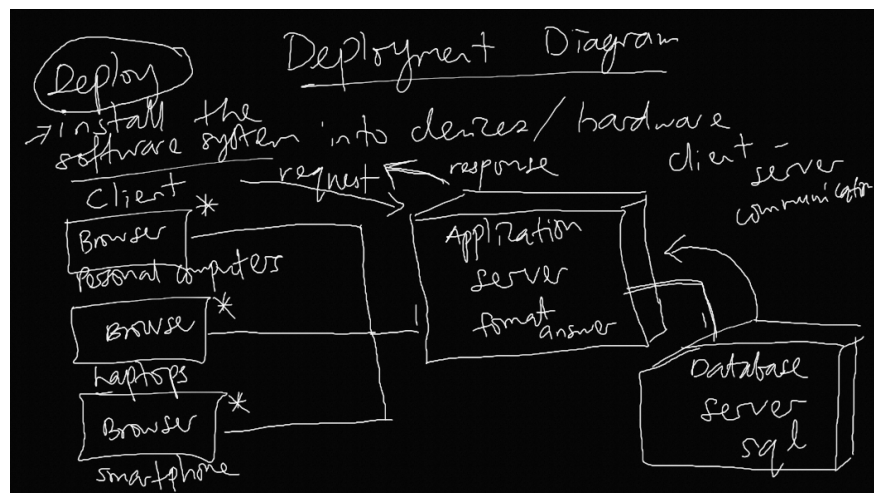 Deployment Diagram
Deploy
→ install the
software system into devizes / hardware
client - server
communication
request
response
Client
Browser *
Pesonal computers
Browse *
Laptops
Browser *
smartphone
1
Application
server
fomat answer
1
Database
server
sql